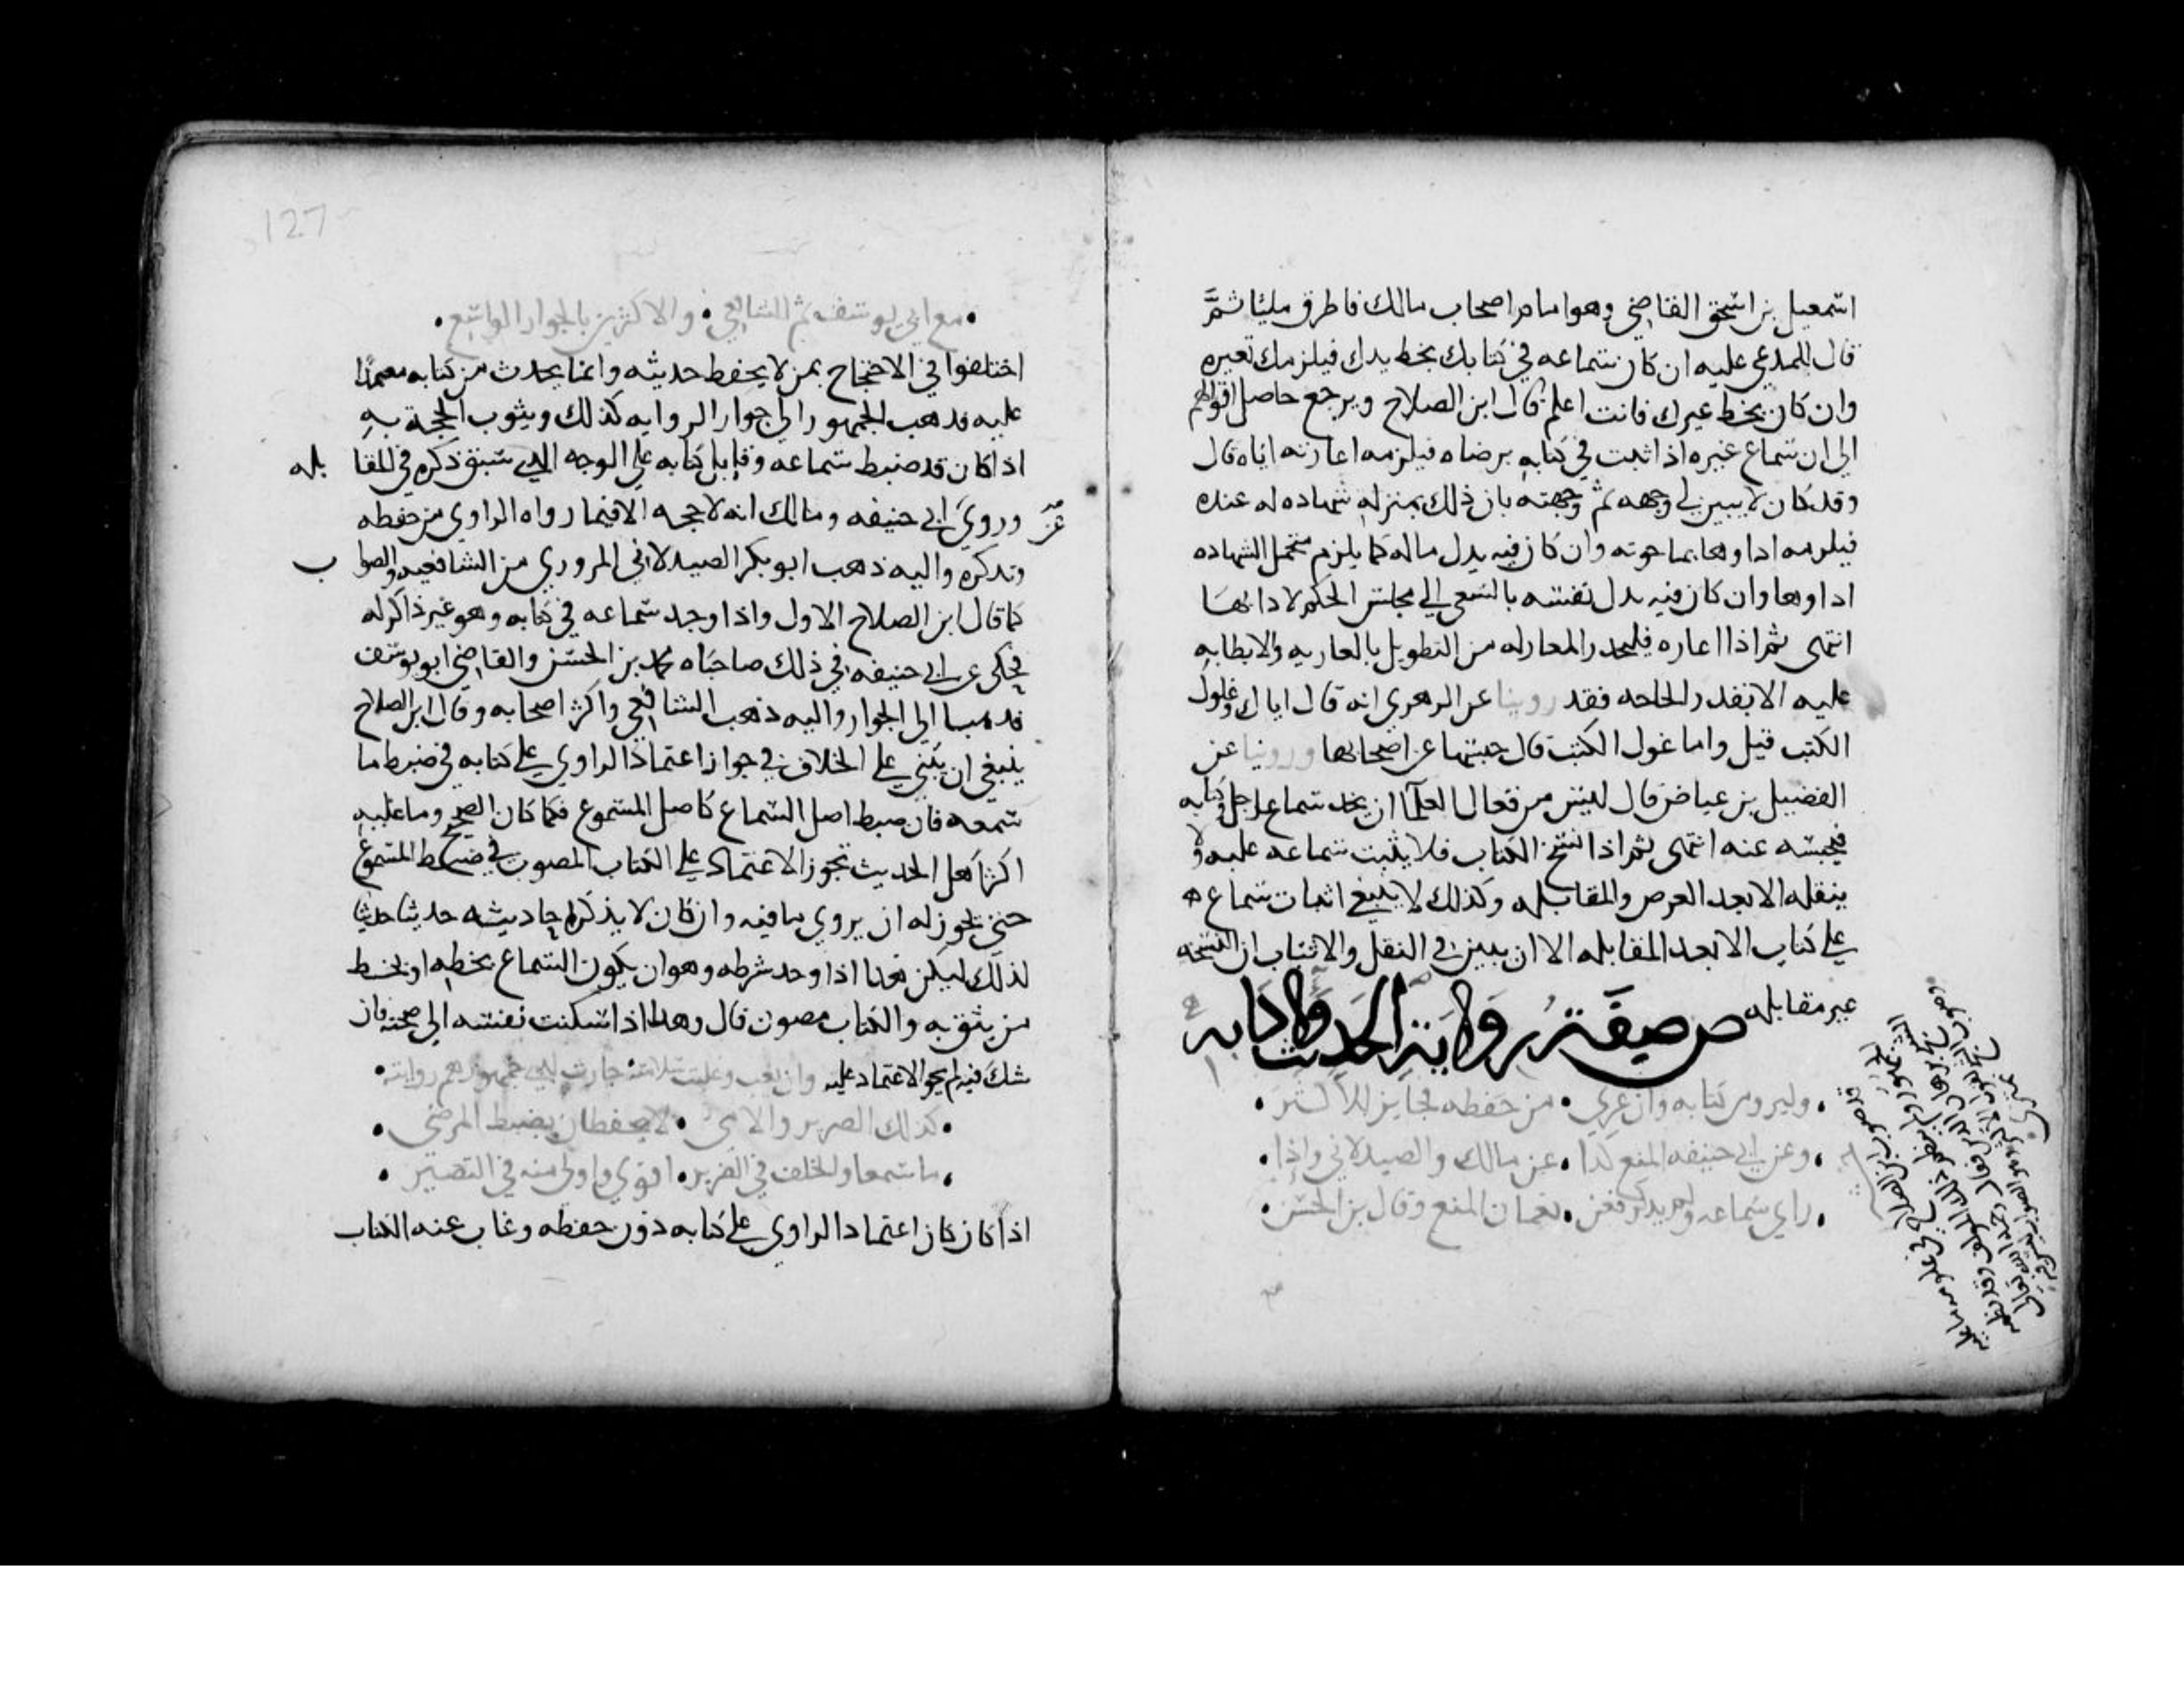 اسمعيل بن اسحق القاضي وهو امام اصحاب مالك فاطرق مليا ثمَّ
قال للمدعي عليه ان كان سماعه في كتابك بخط يدك فيلزمك تعيره
وان كان بخط غيرك فانت اعلم قال ابن الصلاح ويرجع حاصل اقوالهم
الي ان سماع غيره اذا ثبت في كتابه برضاه فيلزمه اعارته اياه قال
وقد كان لا يبين لي وجهه ثم وجهته بان ذلك بمنزله شهاده له عنده
فيلزمه اداوها بما حوته وان كان فيه بدل ماله كما يلزم متحمل الشهاده
اداوها وان كان فيه بدل نفسه بالسعي الي مجلس الحكم لادايها
انتهى ثم اذا اعاره فليحذر المعار له من التطويل بالعاريه والابطا به
عليه الا بقدر الحاجه فقد روينا عن الزهري انه قال اياك وغلول
الكتب قيل وما غلول الكتب قال حبسها عن اصحابها وروينا عن
الفضيل بن عياض قال ليس من فعال العلما ان ياخذ سماع رجل وكتابه
فيحبسه عنه انتهى ثم اذا نسخ الكتاب فلا يثبت سماعه عليه ولا
ينقله الا بعد العرض والمقابله وكذلك لا ينبغي اثبات سماع
علي كتاب الا بعد المقابله الا ان يبين في النقل والاثبات ان النسخه
غير مقابله ص صفة رواية الحديث وادابه
وليرو من كتابه وان عري • من حفظه فجايز للاكثر
وعن ابي حنيفه المنع كذا • عن مالك والصيدلاني واذا
راي سماعه ولم يذكر فعن • نعمان المنع وقال بن الحسن
مع ابي يوسف ثم الشافعي • والاكثرين بالجواز الواسع
اختلفوا في الاحتجاج بمن لا يحفظ حديثه وانما يحدث من كتابه معتمدا
عليه فذهب الجمهور الي جواز الروايه كذلك وثبوت الحجة به
اذا كان قد ضبط سماعه وقابل كتابه علي الوجه الذي سبق ذكره في المقابله
وروي عن ابي حنيفه ومالك انه لا حجه الا فيما رواه الراوي من حفظه
وتذكره واليه ذهب ابو بكر الصيدلاني المروزي من الشافعيه والصواب
كما قال ابن الصلاح الاول واذا وجد سماعه في كتابه وهو غير ذاكر له
فحكى عن ابي حنيفه في ذلك صاحباه محمد بن الحسن والقاضي ابو يوسف
فذهبا الي الجواز واليه ذهب الشافعي واكثر اصحابه وقال ابن الصلاح
ينبغي ان يبني علي الخلاف في جواز اعتماد الراوي علي كتابه في ضبط ما
سمعه فان ضبط اصل السماع كاصل المسموع فكما كان الصحيح وما عليه
اكثر اهل الحديث تجويز الاعتماد علي الكتاب المصون في ضبط المسموع
حتى يجوز له ان يروي ما فيه وان كان لا يذكر احاديثه حديثا حديثا
كذلك ليكن هذا اذا وجد شرطه وهو ان يكون السماع بخطه او بخط
من يثق به والكتاب مصون قال وهذا اذا سكنت نفسه الي صحته فان
شك فيه لم يجز الاعتماد عليه وان يغب وغلبت سلامته جازت لدي جمهورهم روايته
كذلك الضرير والامي • لا يحفظان يضبط المرضي
ما سمعا والخلف في الضرير • اقوي واولى منه في البصير
اذا كان كان اعتماد الراوي علي كتابه دون حفظه وغاب عنه الكتاب
127